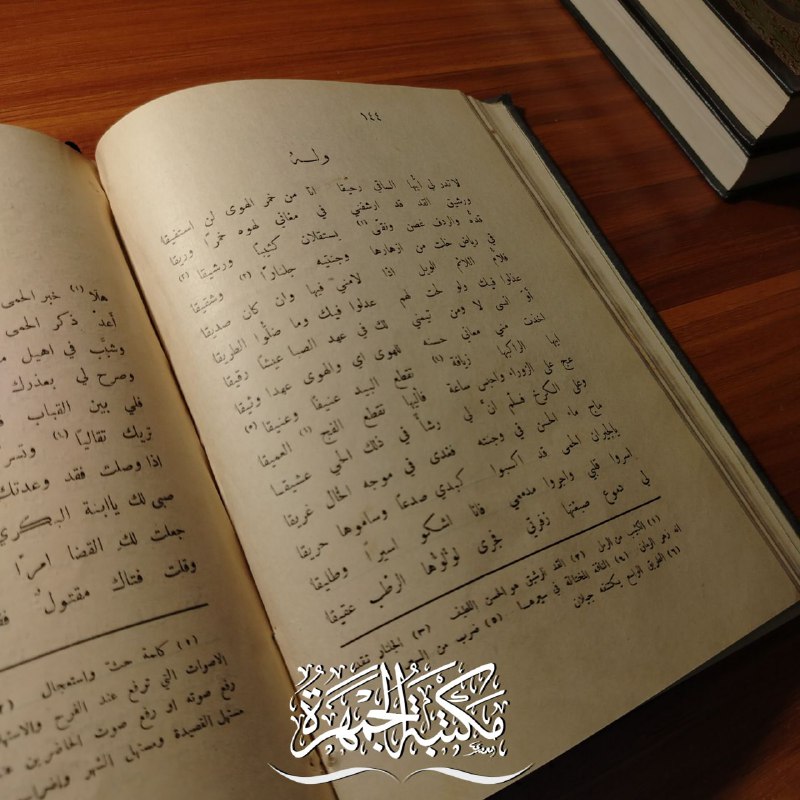 ١٤٤
وله
لا تدر لي أيها الساقي رحيقا انا من خمر الهوى لن استفيقا
ورشيق القد قد ارشفني في مغاني لهوه خمرًا وريقا
قده والردف غصن ونقى (١) يستقلان كثيبًا ورشيقا (٢)
في رياض خلت من ازهارها وجنتيه جلنارًا (٣) وشقيقا
فلأم اللائم الويل اذا لامني فيها وان كان صديقا
عذلوا فيك ولو لحت لهم عدلوا فيك وما ضلّوا الطريقا
أو انسى لا ومن تيمني لك في عهد الصبا عيشًا رقيقا
اخذت مني معاني حسنه للهوى اي والهوى عهدا وثيقا
ايها الراكبها زيافة (٤) تقطع البيد عنيقًا وعنيقا (٥)
عج على الزوراء واحبس ساعة فاليها تقطع الفج (٦) العميقا
وعلى الكرخ فسلّم انّ لي رشأ في ذلك الحي عشيقا
ماج ماء الحسن في وجنته فغدى في موجه الخال غريقا
يا لجيران الحمى قد اكسبوا كبدي صدعًا وساموها حريقا
اسروا قلبي واجروا مدمعي فانا اشكو اسيرًا وطليقا
لي دموع صبغتها زفرتي فجرى لؤلؤها الرطب عقيقا
(١) الكثيب من الرمل (٢) القد الرشيق هو الحسن اللطيف (٣) الجلنار تقدم
انه زهر الرمان (٤) الناقة المختالة في سيرها (٥) ضرب من السير
(٦) الطريق الواسع يكتنفه جبلان
هلا (١) خبر الحمى
أعد ذكر الحمى
وشبّب في اهيل
وصرح لي بعذرك
فلي بين القباب
تريك تقاليًا (١) وتسر
اذا وصلت فقد وعدتك
صبى لك ياابنة البكري
جعلت لك القضا امرًا
وقلت فتاك مقتول
(٥) كلمة حث واستعجال
الاصوات التي ترفع عند الفرح
رفع صوته او رفع صوت الحاضرين
مستهل القصيدة ومستهل الشهر
مكتبة الجمهرة